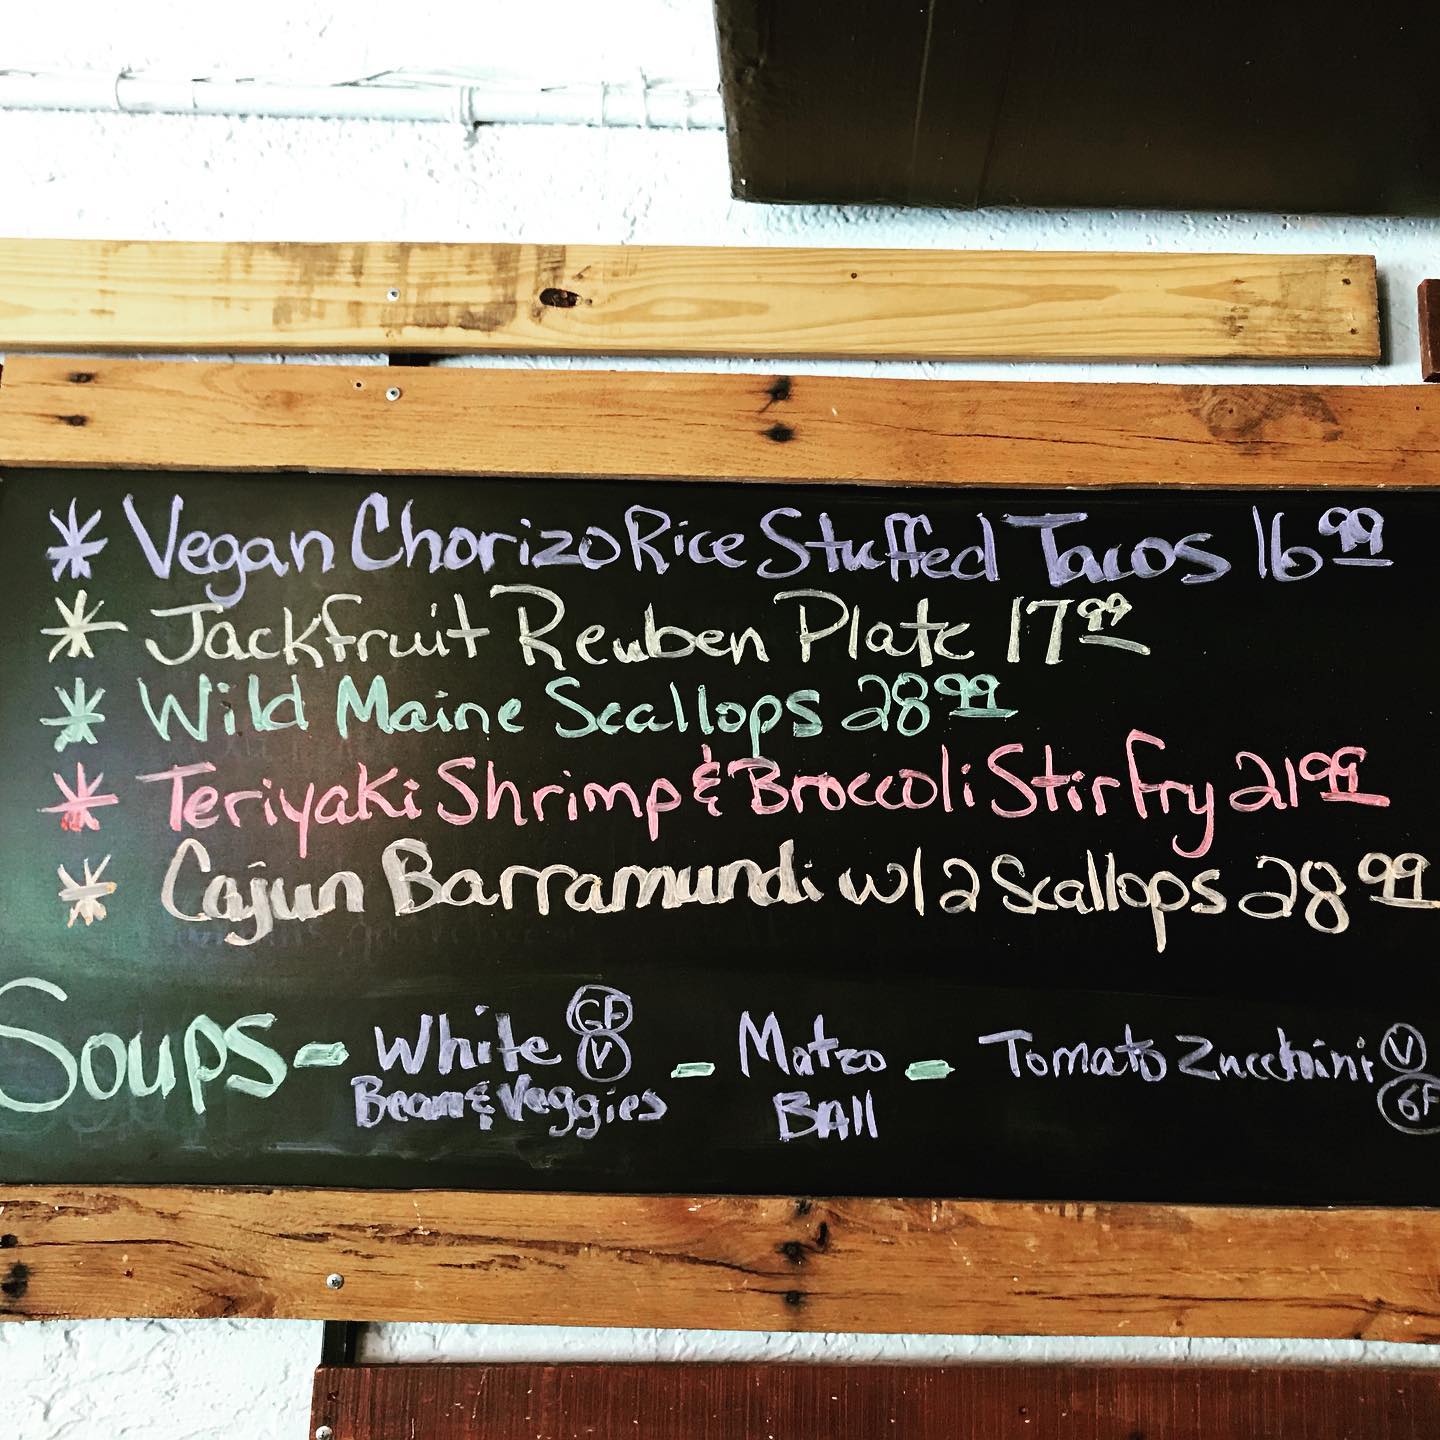 * Vegan Chorizo Rice Stuffed Tacos 16 99
* Jackfruit Reuben Plate 17 99
* Wild Maine Scallops 28 99
* Teriyaki Shrimp & Broccoli Stir Fry 21 99
* Cajun Barramundi w/ 2 Scallops 28 99
Soups - White GF V - Matzo - Tomato Zucchini V GF
Bean & Veggies BAll